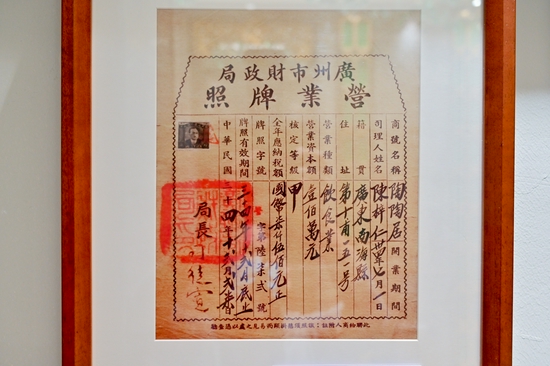 廣州市財政局
營業牌照
商號名稱 陶陶居 開業期間
司理人姓名 陳梓仁 卅四年七月一日
籍貫 廣東南海縣
住址 第十甫一五號
營業種類 飲食業
營業資本額 壹佰萬元
核定等級 甲
全年應納稅額 國幣柒仟伍佰元正
牌照字號 字第陸柒弍號
牌照有效期間 三十四年十弍月底止
中華民國三十四年十月
局長